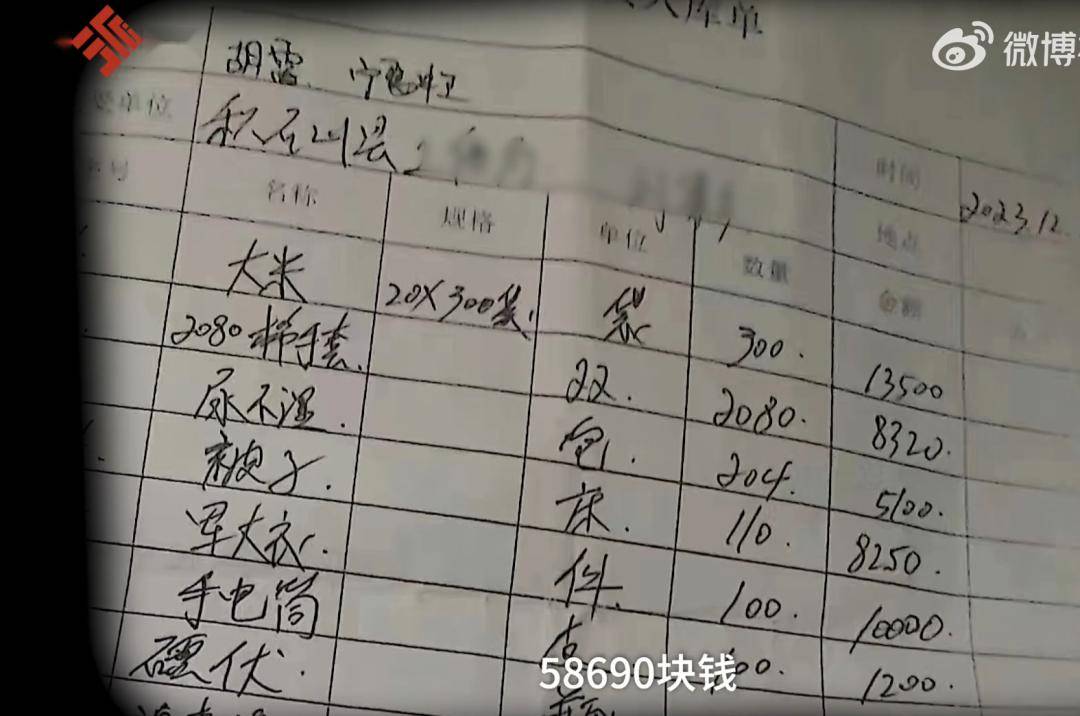 入库单
微博
胡霞、宁
受单位 积石山县
时间 2023.12.
名称 规格 单位 数量 地点
金额
大米 20×300袋. 袋 300. 13500
2080 手套. 22. 2080. 8320.
尿不湿. 包. 204. 5100.
被子. 床. 110. 8250.
军大衣. 件. 100. 10000.
手电筒 00. 1200.
伏.
58690块钱